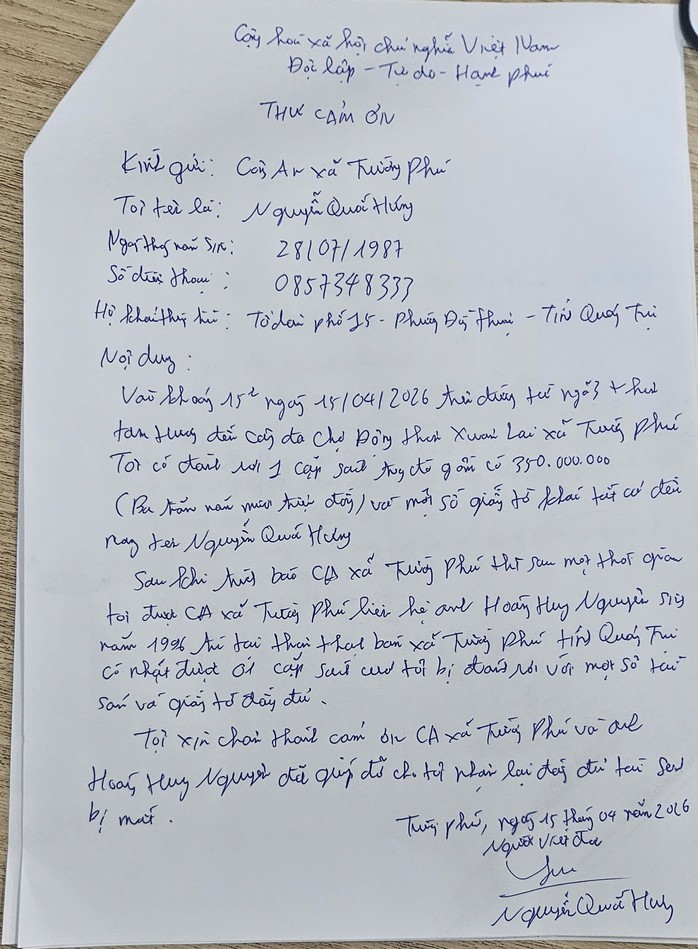 Cộng hoà xã hội chủ nghĩa Việt Nam
Độc lập - Tự do - Hạnh phúc
THƯ CẢM ƠN
Kính gửi: Công An xã Trường Phú
Tôi tên là: Nguyễn Quốc Hưng
Ngày tháng năm sinh: 28/07/1987
Số điện thoại: 0857348333
Hộ khẩu thường trú: Tổ dân phố 15 - Phường Đồng Thuận - Tỉnh Quảng Trị
Nội dung:
Vào khoảng 15h ngày 15/04/2026 trên đường từ ngã 3
đến cây đa chợ Đông thôn Xuân Lai xã Trường Phú
Tôi có đánh rơi 1 cặp sách trong đó gồm có 350.000.000
(Ba trăm năm mươi triệu đồng) và một số giấy tờ khác tất cả đều
mang tên Nguyễn Quốc Hưng
Sau khi trình báo CA xã Trường Phú thì sau một thời gian
tôi được CA xã Trường Phú liên hệ anh Hoàng Huy Nguyên sinh
năm 1996 trú tại thôn xã Trường Phú tỉnh Quảng Trị
có nhặt được 01 cặp sách của tôi bị đánh rơi với một số tài
sản và giấy tờ đầy đủ.
Tôi xin chân thành cảm ơn CA xã Trường Phú và anh
Hoàng Huy Nguyên đã giúp đỡ cho tôi nhận lại đầy đủ tài sản
bị mất.
Trường Phú, ngày 15 tháng 04 năm 2026
Người viết đơn
Nguyễn Quốc Hưng